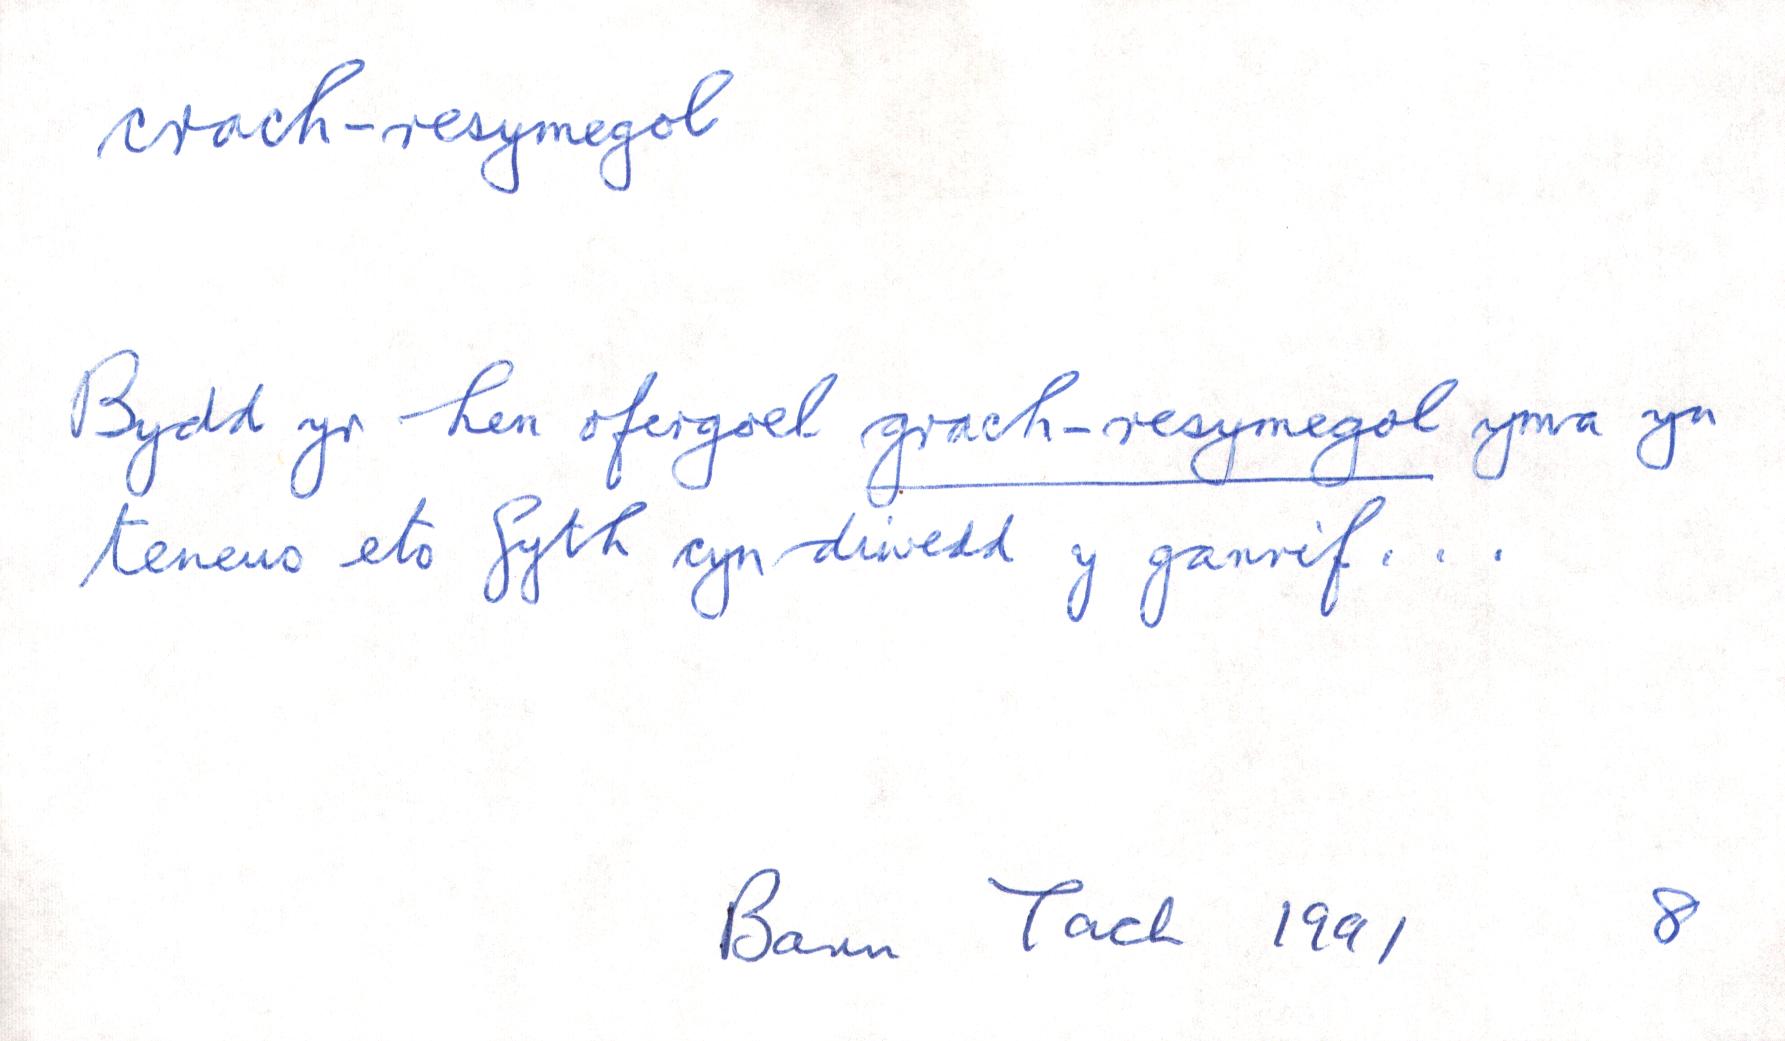 crach-resymegol
Bydd yr hen ofergoel grach-resymegol yma yn
teneuo eto fyth cyn diwedd y ganrif...
Barn Tach 1991 8